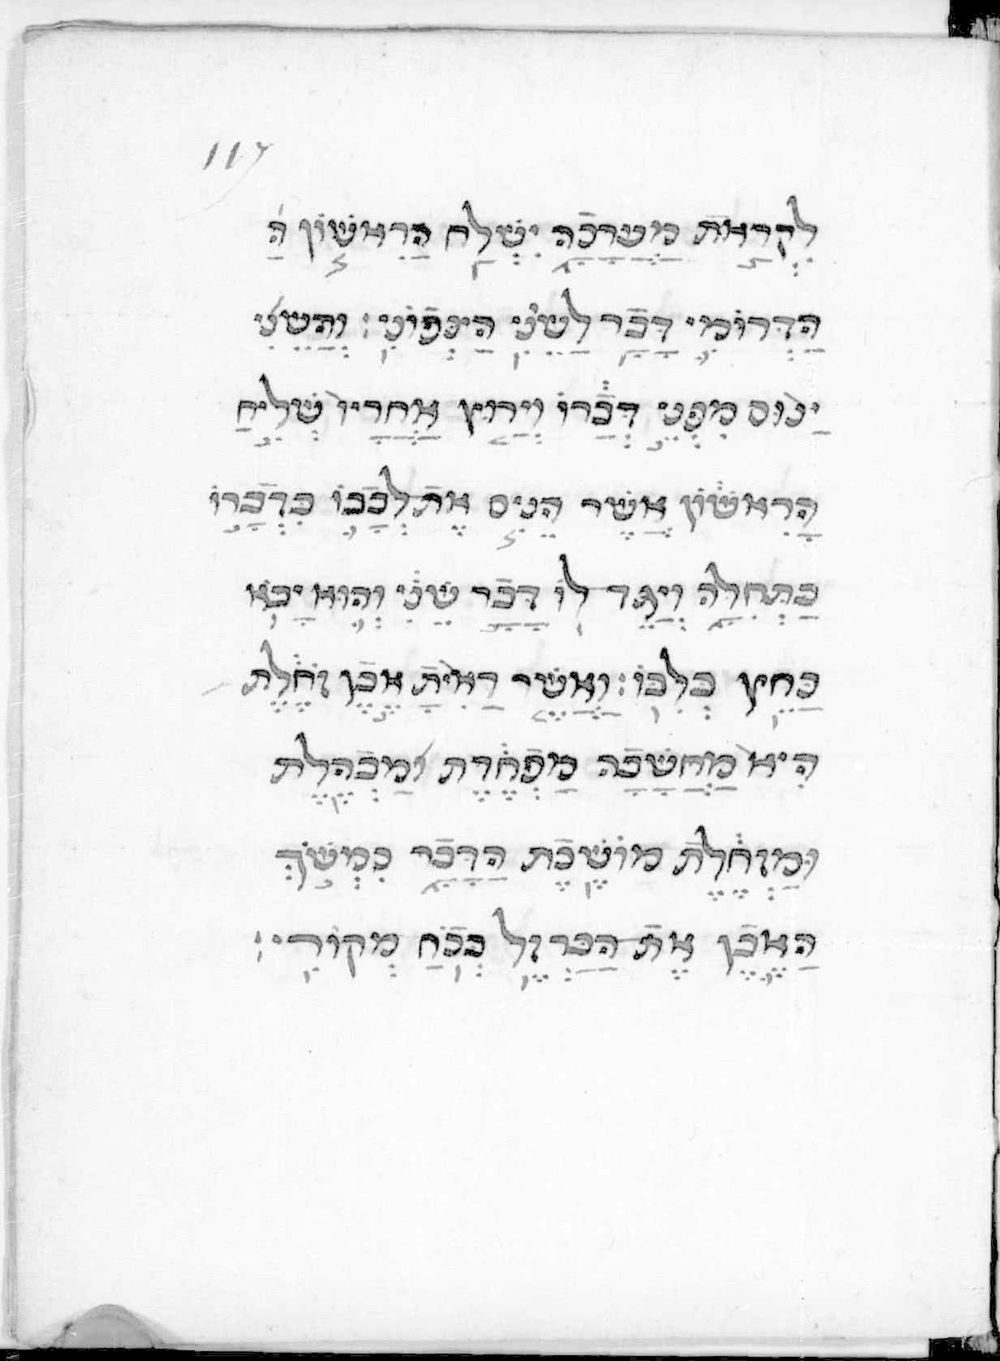 117
לִקְרַאת מַעֲרָכָה יִשְׁלַח הָרִאשׁוֹן הַ
הַדְּרוֹמִי דָּבָר לַשֵּׁנִי הַצְּפוֹנִי: וְהַשֵּׁנִי
יַנוּס מִפְּנֵי דְבָרוֹ וְיָרוּץ אַחֲרָיו שְׁלִיחַ
הָרִאשׁוֹן אֲשֶׁר הֵנִיס אֶת לְבָבוֹ כִּדְבָרוֹ
בַּתְּחִלָּה וְיַגֶּד לוֹ דָּבָר שֵׁנִי וְהוּא יָבֹא
כַּחֵץ בְּלִבּוֹ: וַאֲשֶׁר רָאִיתָ אֶבֶן זֹחֶלֶת
הִיא מַחֲשָׁבָה מַפְחֶדֶת וּמַבְהֶלֶת
וּמַזְחֶלֶת מוֹשֶׁכֶת הַדָּבָר כִּמְשֹׁךְ
הָאֶבֶן אֶת הַבַּרְזֶל בְּכֹחַ מְקוֹרִי: